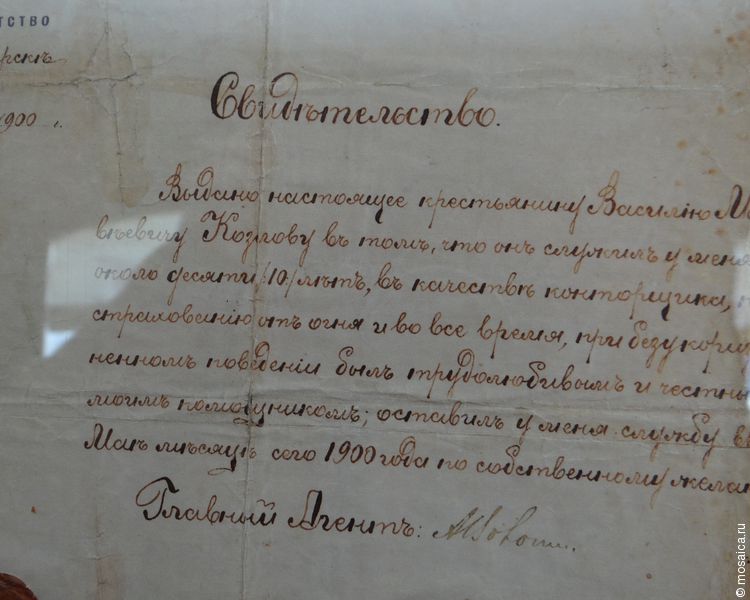 тство
рскъ
1900 г.
Свидѣтельство.
Выдано настоящее крестьянину Василію М
вѣевичу Козлову въ томъ, что онъ служилъ у меня
около десяти /10/ лѣтъ, въ качествѣ конторщика,
страхованію отъ огня и во все время, при безукориз
ненномъ поведеніи былъ трудолюбивымъ и честны
моимъ помощникомъ; оставилъ у меня службу въ
Маѣ мѣсяцѣ сего 1900 года по собственному желан
Главный Агентъ:
© mosaica.ru